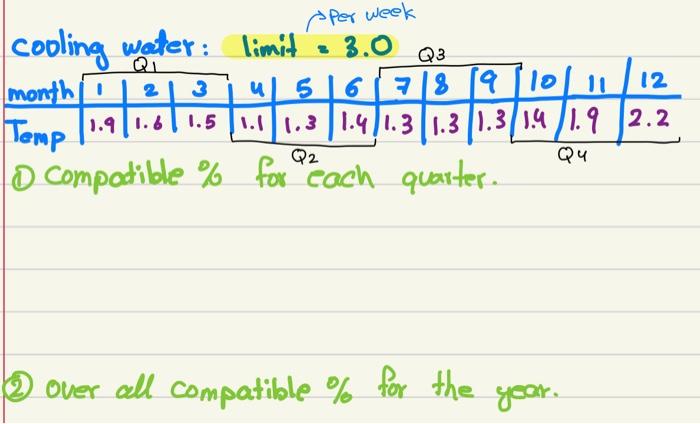 per week
cooling water: limit = 3.0
Q1 Q3
month 1 2 3 4 5 6 7 8 9 10 11 12
Temp 1.9 1.6 1.5 1.1 1.3 1.4 1.3 1.3 1.3 1.4 1.9 2.2
Q2 Q4
① Compatible % for each quarter.
② over all compatible % for the year.